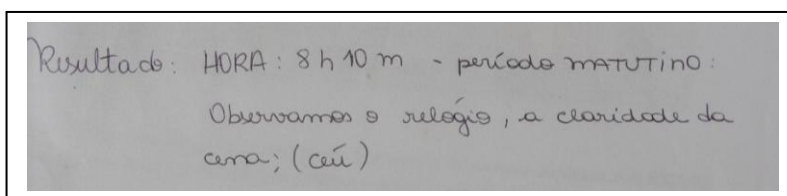 Resultado: HORA: 8 h 10 m - período MATUTINO:
Observamos o relógio, a claridade da
cena; (céu)